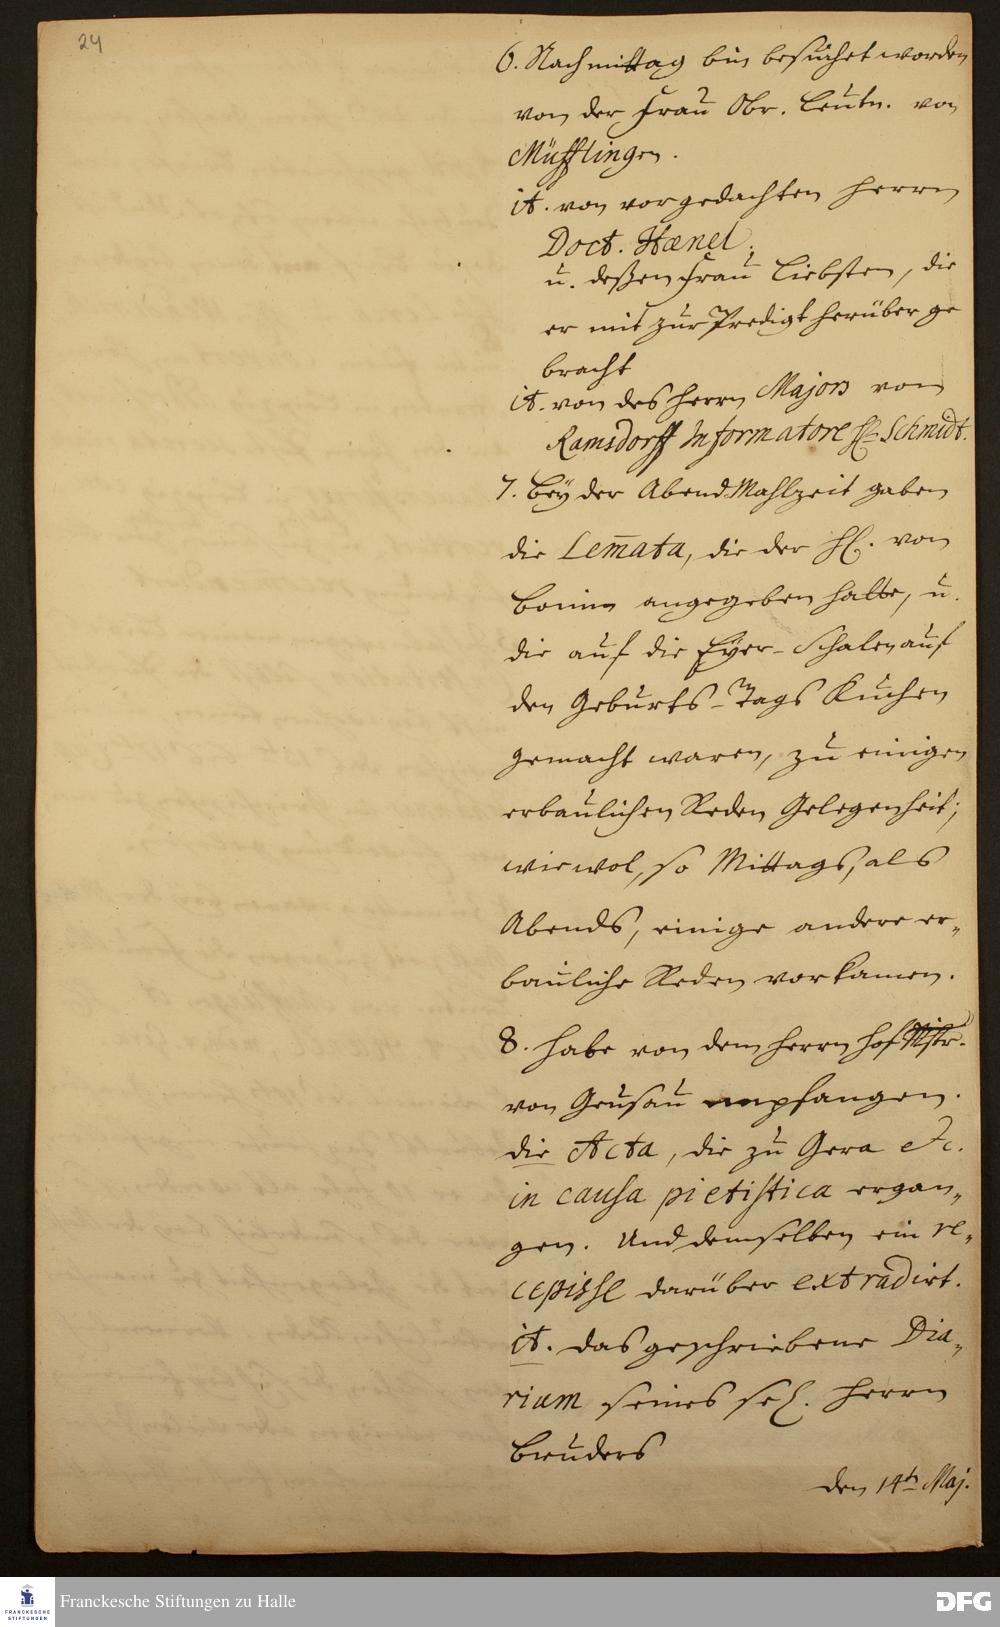 24
6. Nachmittag bin besuchet worden
von der Frau Obr. Leutn. von
Müfflingen.
it. von vorgedachten Herrn
Doct. Hænel.
u. deßen Frau Liebsten, die
er mit zur Predigt herüber ge
bracht
it. von des Herrn Majors von
Ramsdorff Informatore H. Schmidt.
7. Bey der Abend-Mahlzeit gaben
die Lem̄ata, die der H. von
Bonin angegeben hatte, u.
die auf die Eyer-Schalen auf
den Geburts-Tags Kuchen
gemacht waren, zu einigen
erbaulichen Reden Gelegenheit;
wiewol, so Mittags, als
Abends, einige andere er„
bauliche Reden vorkamen.
8. Habe von dem Herrn Hof Mstr.
von Geusau empfangen.
die Acta, die zu Gera etc.
in causa pietistica ergan„
gen. Und demselben ein re„
cepisse darüber extradirt.
it. das geschriebene Dia„
rium seines sel. Herrn
Bruders
den 14th Maj.
FRANCKESCHE STIFTUNGEN
Franckesche Stiftungen zu Halle
DFG